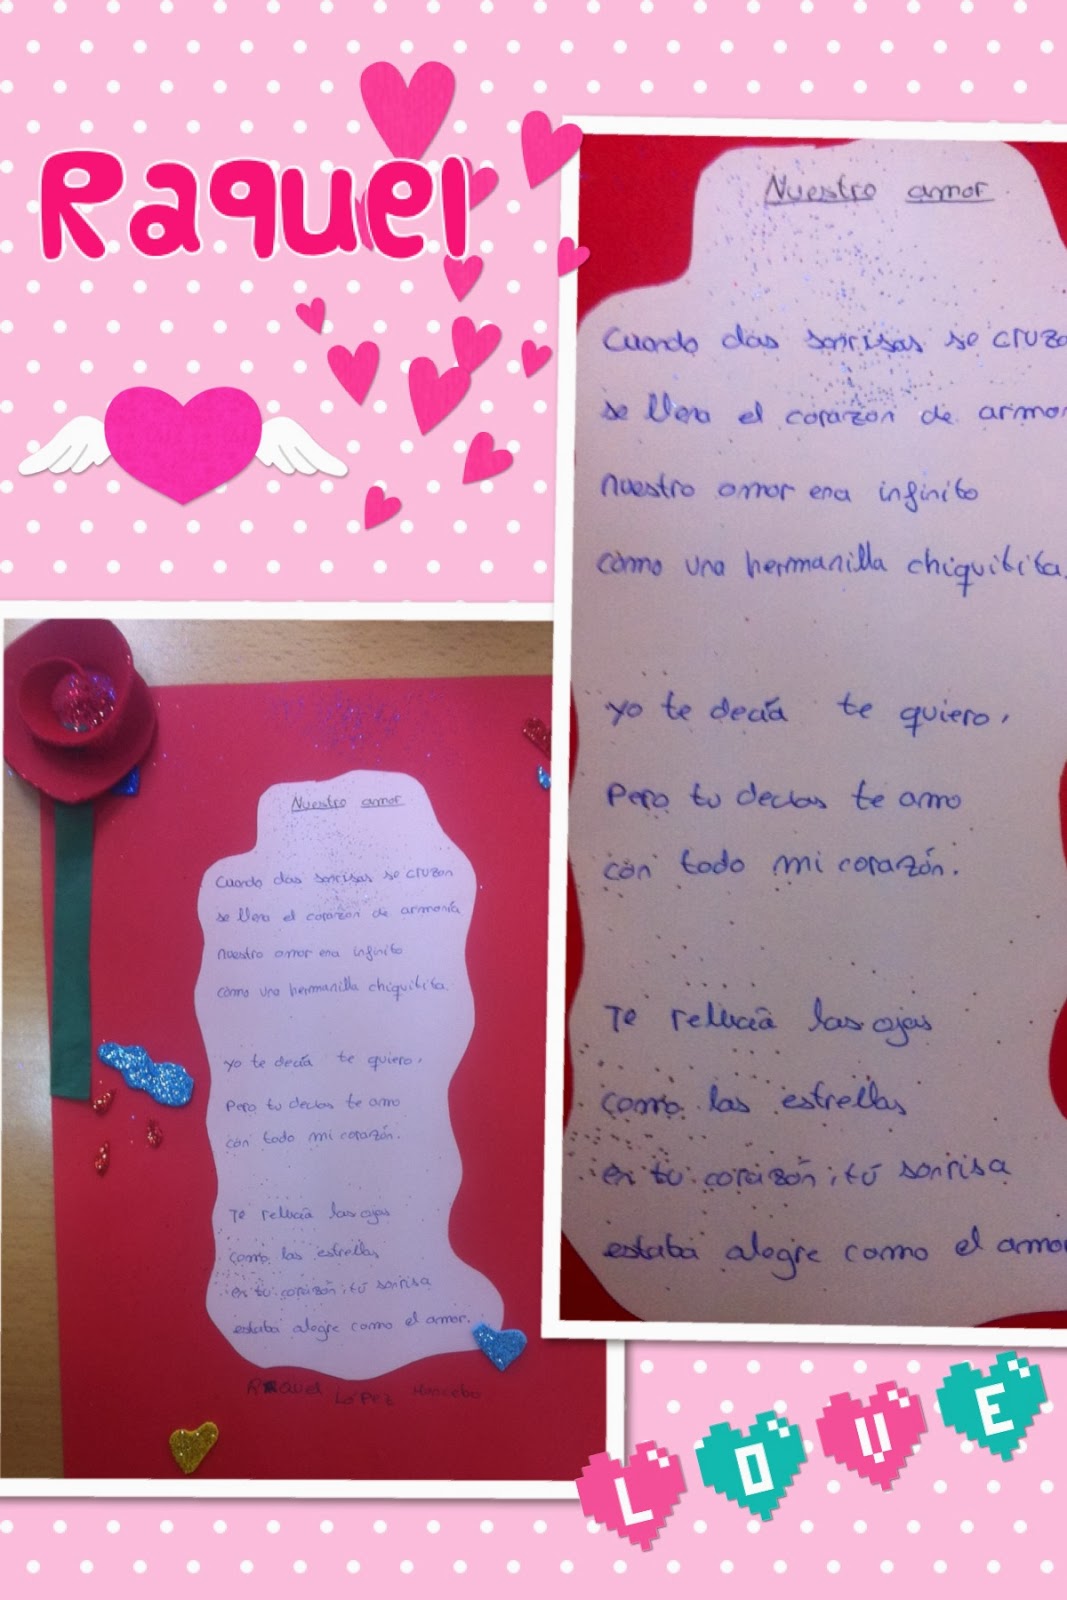 Raquel
Nuestro amor
Cuando dos sonrisas se cruza
se llena el corazon de armon
nuestro amor era infinito
como una hermanilla chiquitita.
yo te decía te quiero,
Pero tu decías te amo
con todo mi corazón.
Te relucía los ojos
como las estrellas
en tu corazón, tú sonrisa
estaba alegre como el amor
Nuestro amor
Cuando dos sonrisas se cruzan
se llena el corazon de armonía
nuestro amor era infinito
como una hermanilla chiquitita.
yo te decía te quiero,
Pero tu decías te amo
con todo mi corazón.
Te relucía los ojos
como las estrellas
en tu corazón, tú sonrisa
estaba alegre como el amor.
Raquel López Mancebo
LOVE